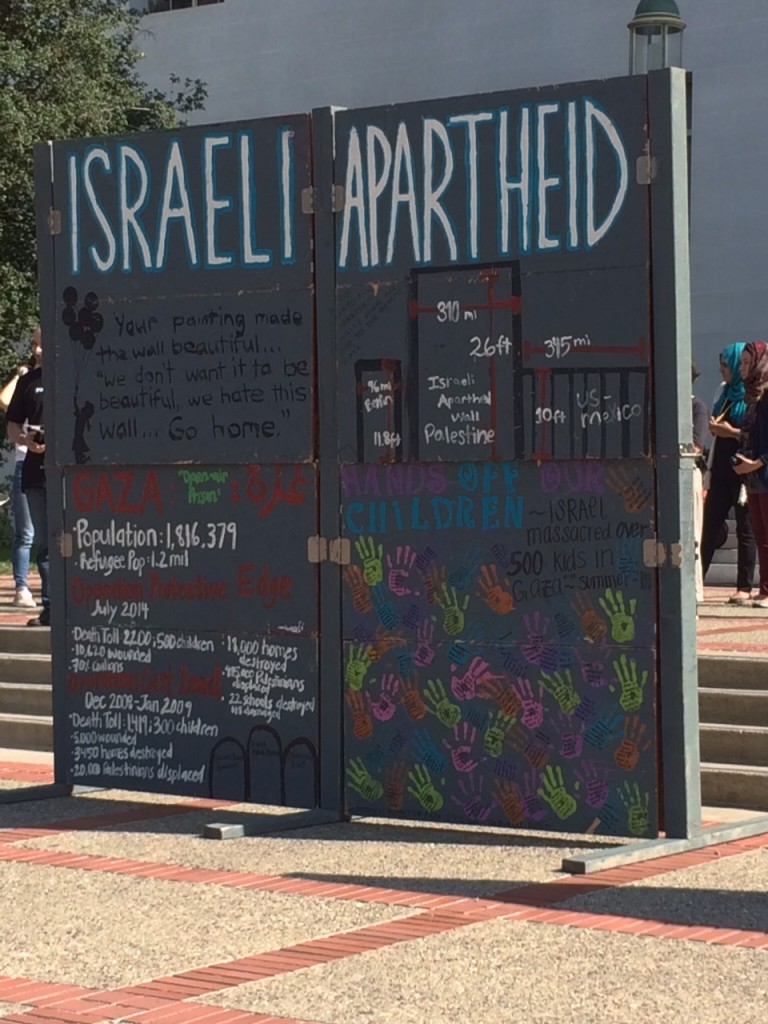 ISRAELI APARTHEID
Your painting made
the wall beautiful...
"we don't want it to be
beautiful, we hate this
wall... Go home."
310 mi
26ft
345 mi
96 mi
Berlin
11.8ft
Israeli
Apartheid
Wall
Palestine
10ft
US-
mexico
GAZA "Open-air Prison" : غزة
Population: 1,816,379
Refugee Pop: 1.2 mil
Operation Protective Edge
July 2014
·Death Toll 2200; 500 children
·10,620 wounded
·70% civilians
·18,000 homes
destroyed
Palestinians
displaced
·22 schools destroyed
Operation Cast Lead
Dec 2008-Jan 2009
·Death Toll: 1419; 300 children
·5,000 wounded
·3450 homes destroyed
·20,000 Palestinians displaced
HANDS OFF OUR
CHILDREN
~ISRAEL
massacred over
500 kids in
Gaza~ summer